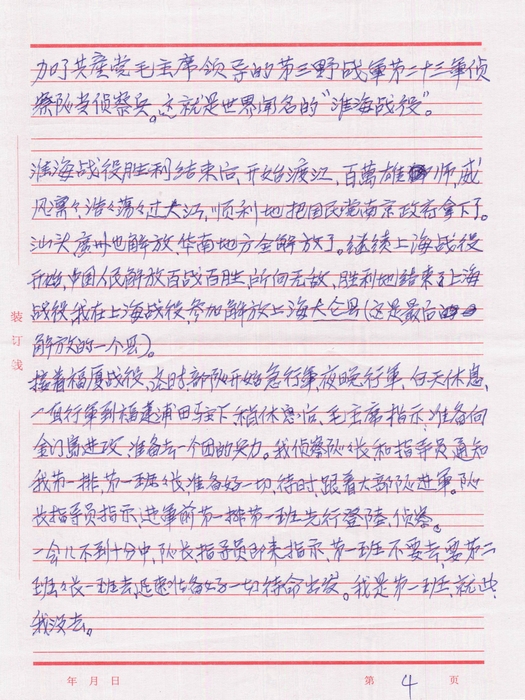 加了共產党毛主席领导的第三野战軍第二十三軍侦
察队当侦察兵。这就是世界闻名的“淮海战役”。
淮海战役胜利结束后,开始渡江,百萬雄师,威
风凛々,浩々荡々过大江,顺利地把国民党南京政府拿下了。
汕头廣州也解放,华南地方全解放了。继续上海战役
开始,中国人民解放百战百胜,所向无敌,胜利地结束了上海
战役,我在上海战役,参加解放上海太仓县(这是最后
解放的一个县)。
接着福厦战役,这时,部队开始急行軍,夜晚行軍,白天休息,
一直行軍到福建浦田驻下,稍休息后,毛主席指示,准备向
金门島进攻,准备去一个团的实力。我侦察队々长和指导员通知
我第一排,第一班々长准备好一切,待时,跟着大部队进軍。队
长指导员指示,进軍前第一排第一班先行登陸,侦察。
一会儿不到十分中,队长指导员即来指示,第一班不要去,要第二
班々长一班去,准备好一切待命出发。我是第一班,就此
我没去。
装订线
年 月 日
第 4 页